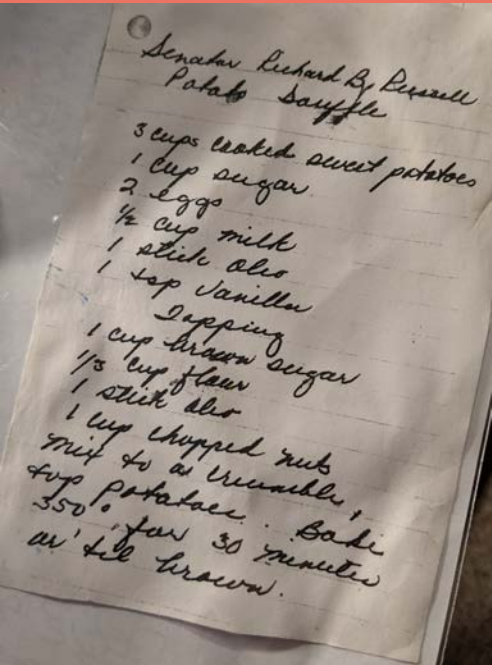 Senator Richard B. Russell
Potato Souffle
3 cups cooked sweet potatoes
1 cup sugar
2 eggs
1/2 cup milk
1 stick oleo
1 tsp vanilla
Topping
1 cup brown sugar
1/3 cup flour
1 stick oleo
1 cup chopped nuts
mix to a crumble,
top potatoes. Bake
350° for 30 minutes
or 'til brown.